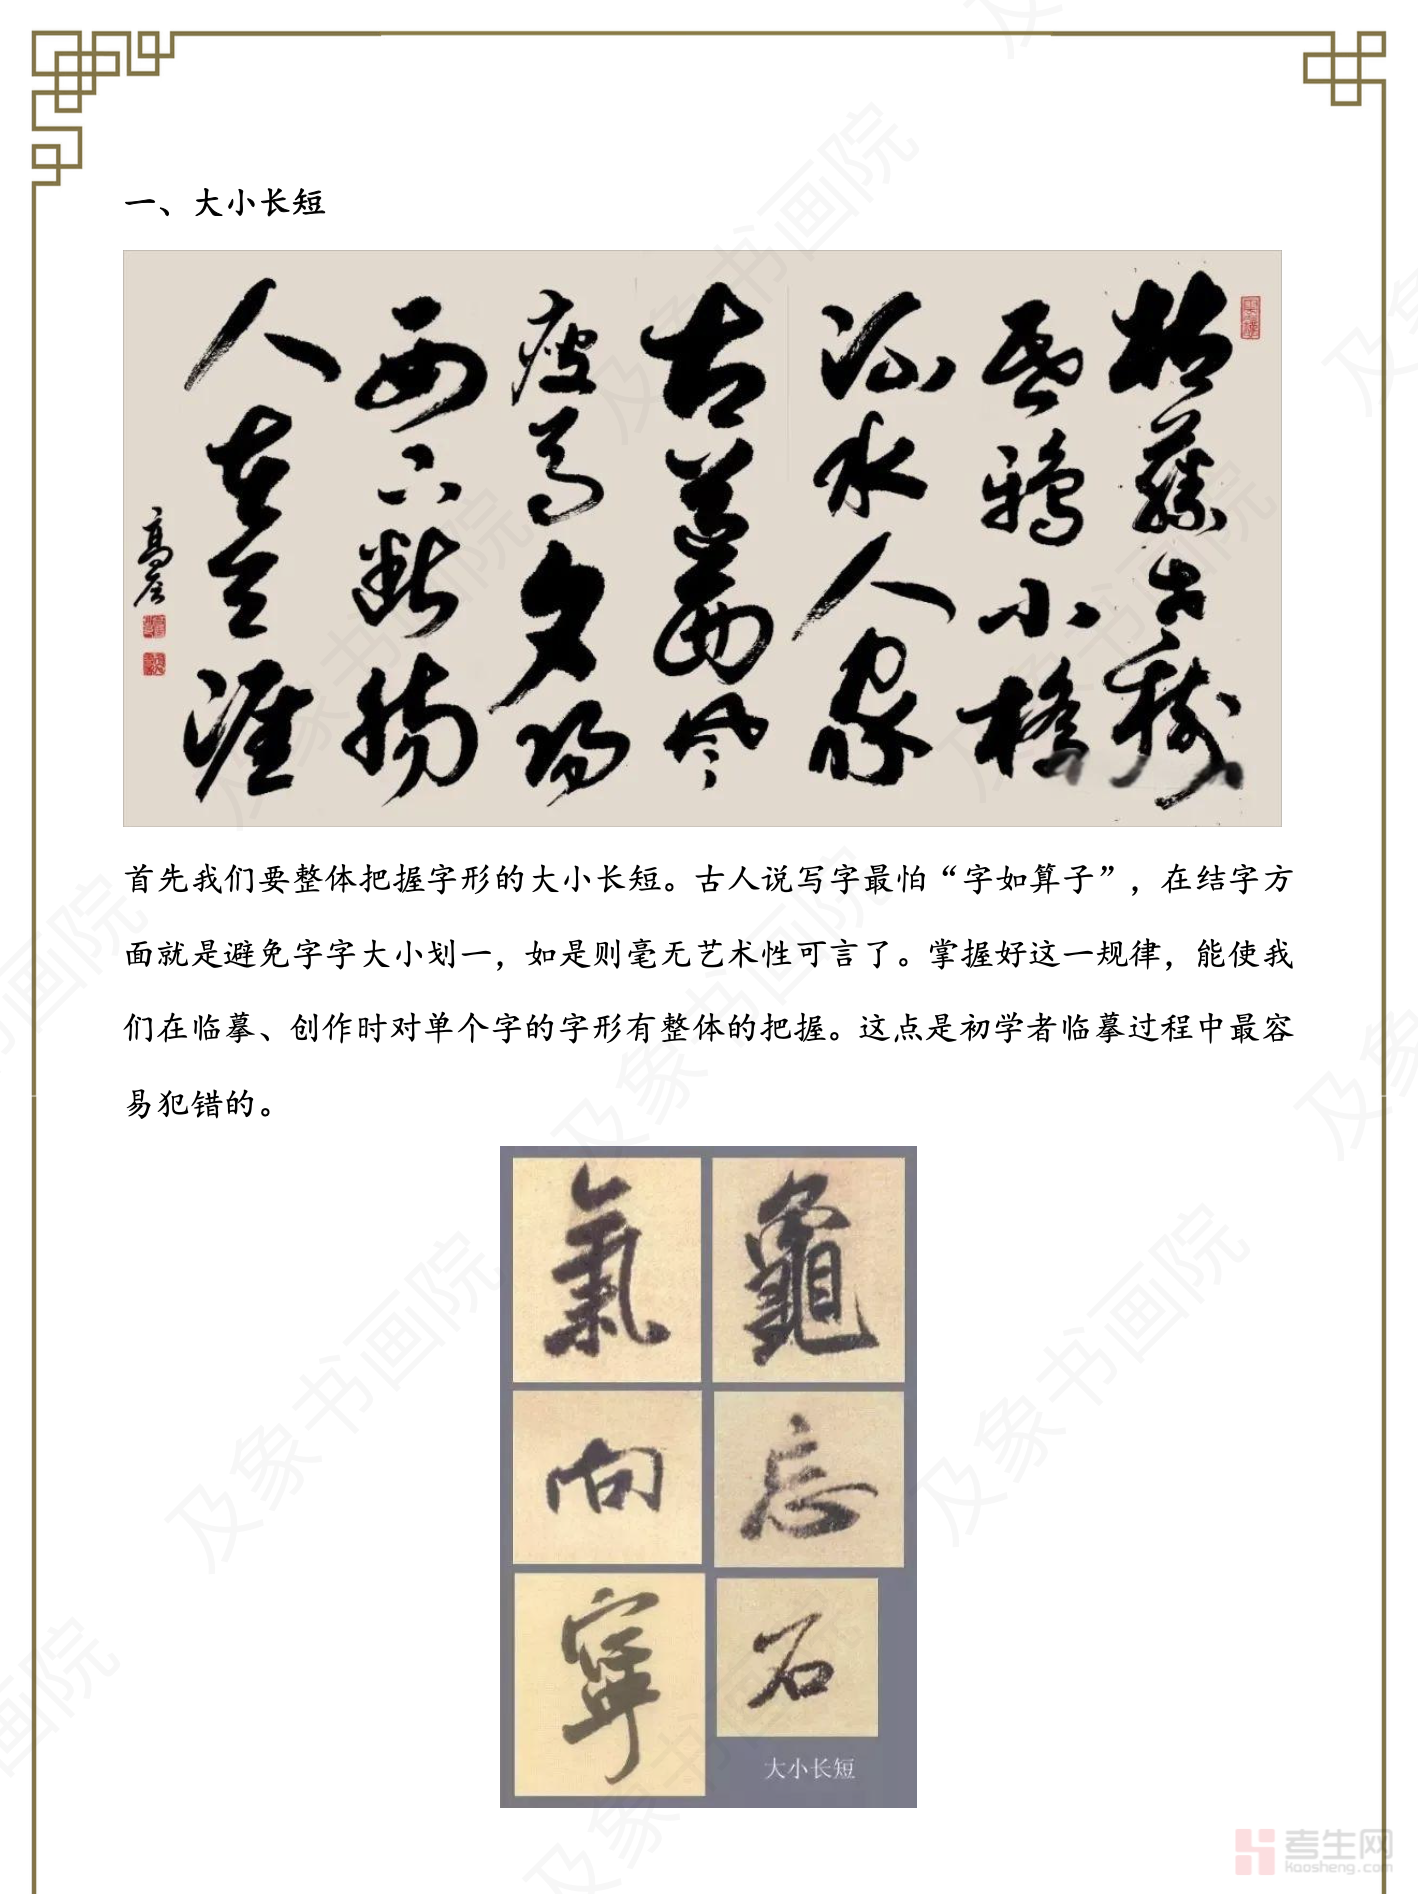 一、大小长短
枯藤古树
昏鸦小桥
流水人家
古道西风
瘦马夕阳
西下断肠
人在天涯
首先我们要整体把握字形的大小长短。古人说写字最怕“字如算子”，在结字方
面就是避免字字大小划一，如是则毫无艺术性可言了。掌握好这一规律，能使我
们在临摹、创作时对单个字的字形有整体的把握。这点是初学者临摹过程中最容
易犯错的。
氣 龜
向 忘
寧 石
大小长短
及象书画院
考生网
kaosheng.com